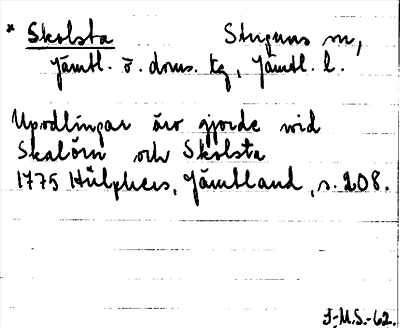 * Skolsta Stuguns sn,
Jämtl. ö. doms. tg, Jämtl. l.
Upodlingar äro gjorde vid
Skalörn och Skolsta
1775 Hülphers, Jämtland, s. 208.
J.M.S.-62.